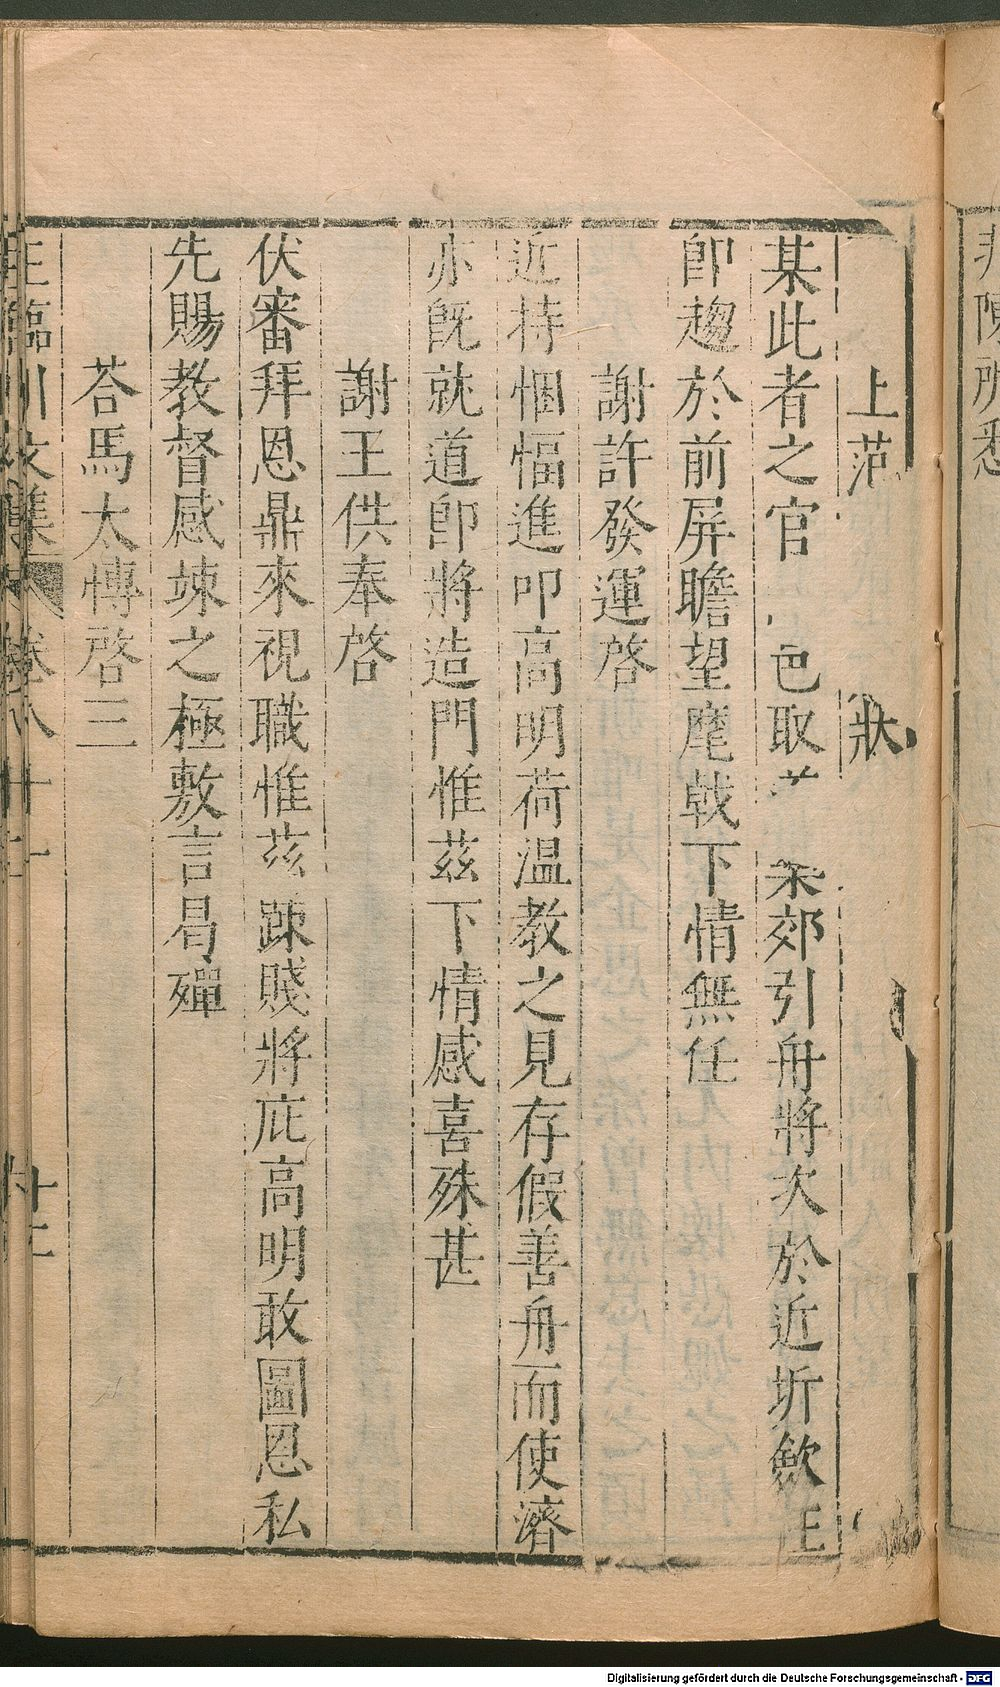 上范狀
某此者之官色取宋郊引舟將次於近圻歛
即趨於前屏瞻望麾戟下情無任
謝許發運啓
近持悃愊進叩高明荷温教之見存假善舟而使濟
亦既就道即將造門惟茲下情感喜殊甚
謝王供奉啓
伏審拜恩鼎來視職惟茲踈賤將庇高明敢圖恩私
先賜教督感竦之極敷言曷殫
荅馬太慱啓三
王臨川文集 卷八十一
Digitalisierung gefördert durch die Deutsche Forschungsgemeinschaft - DFG